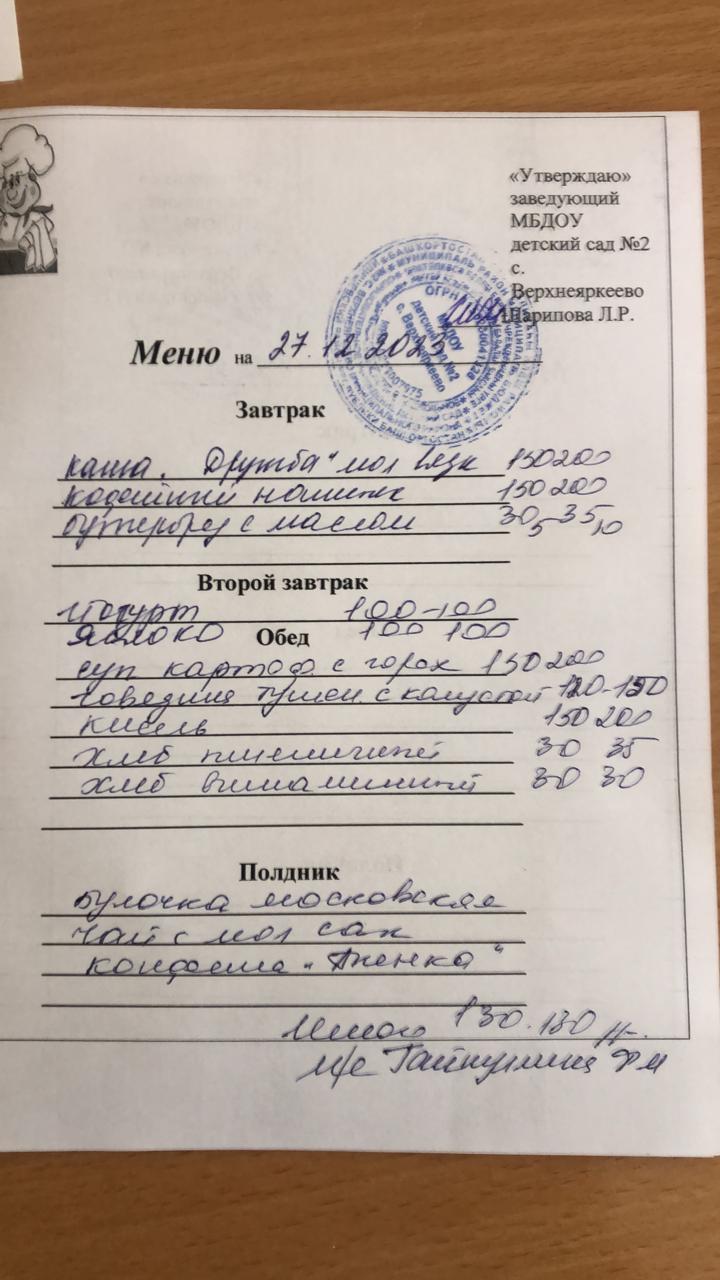 «Утверждаю»
заведующий
МБДОУ
детский сад №2
с.
Верхнеяркеево
Шарипова Л.Р.
Меню на 27.12 2023
МБДОУ
детский сад №2
с. Верхнеяркеево
Завтрак
каша „Дружба" мол вязк 150 200
кофейный напиток 150 200
бутерброд с маслом 30 5 35 10
Второй завтрак
йогурт 100-100
яблоко 100 100
Обед
суп картоф. с горох 150 200
говядина тушен. с капустой 120-150
кисель 150 200
хлеб пшеничный 30 35
хлеб витаминный 30 30
Полдник
Булочка московская
Чай с мол сах
конфета „ "
Итого 130.130
м/с Гайнуллина ФМ